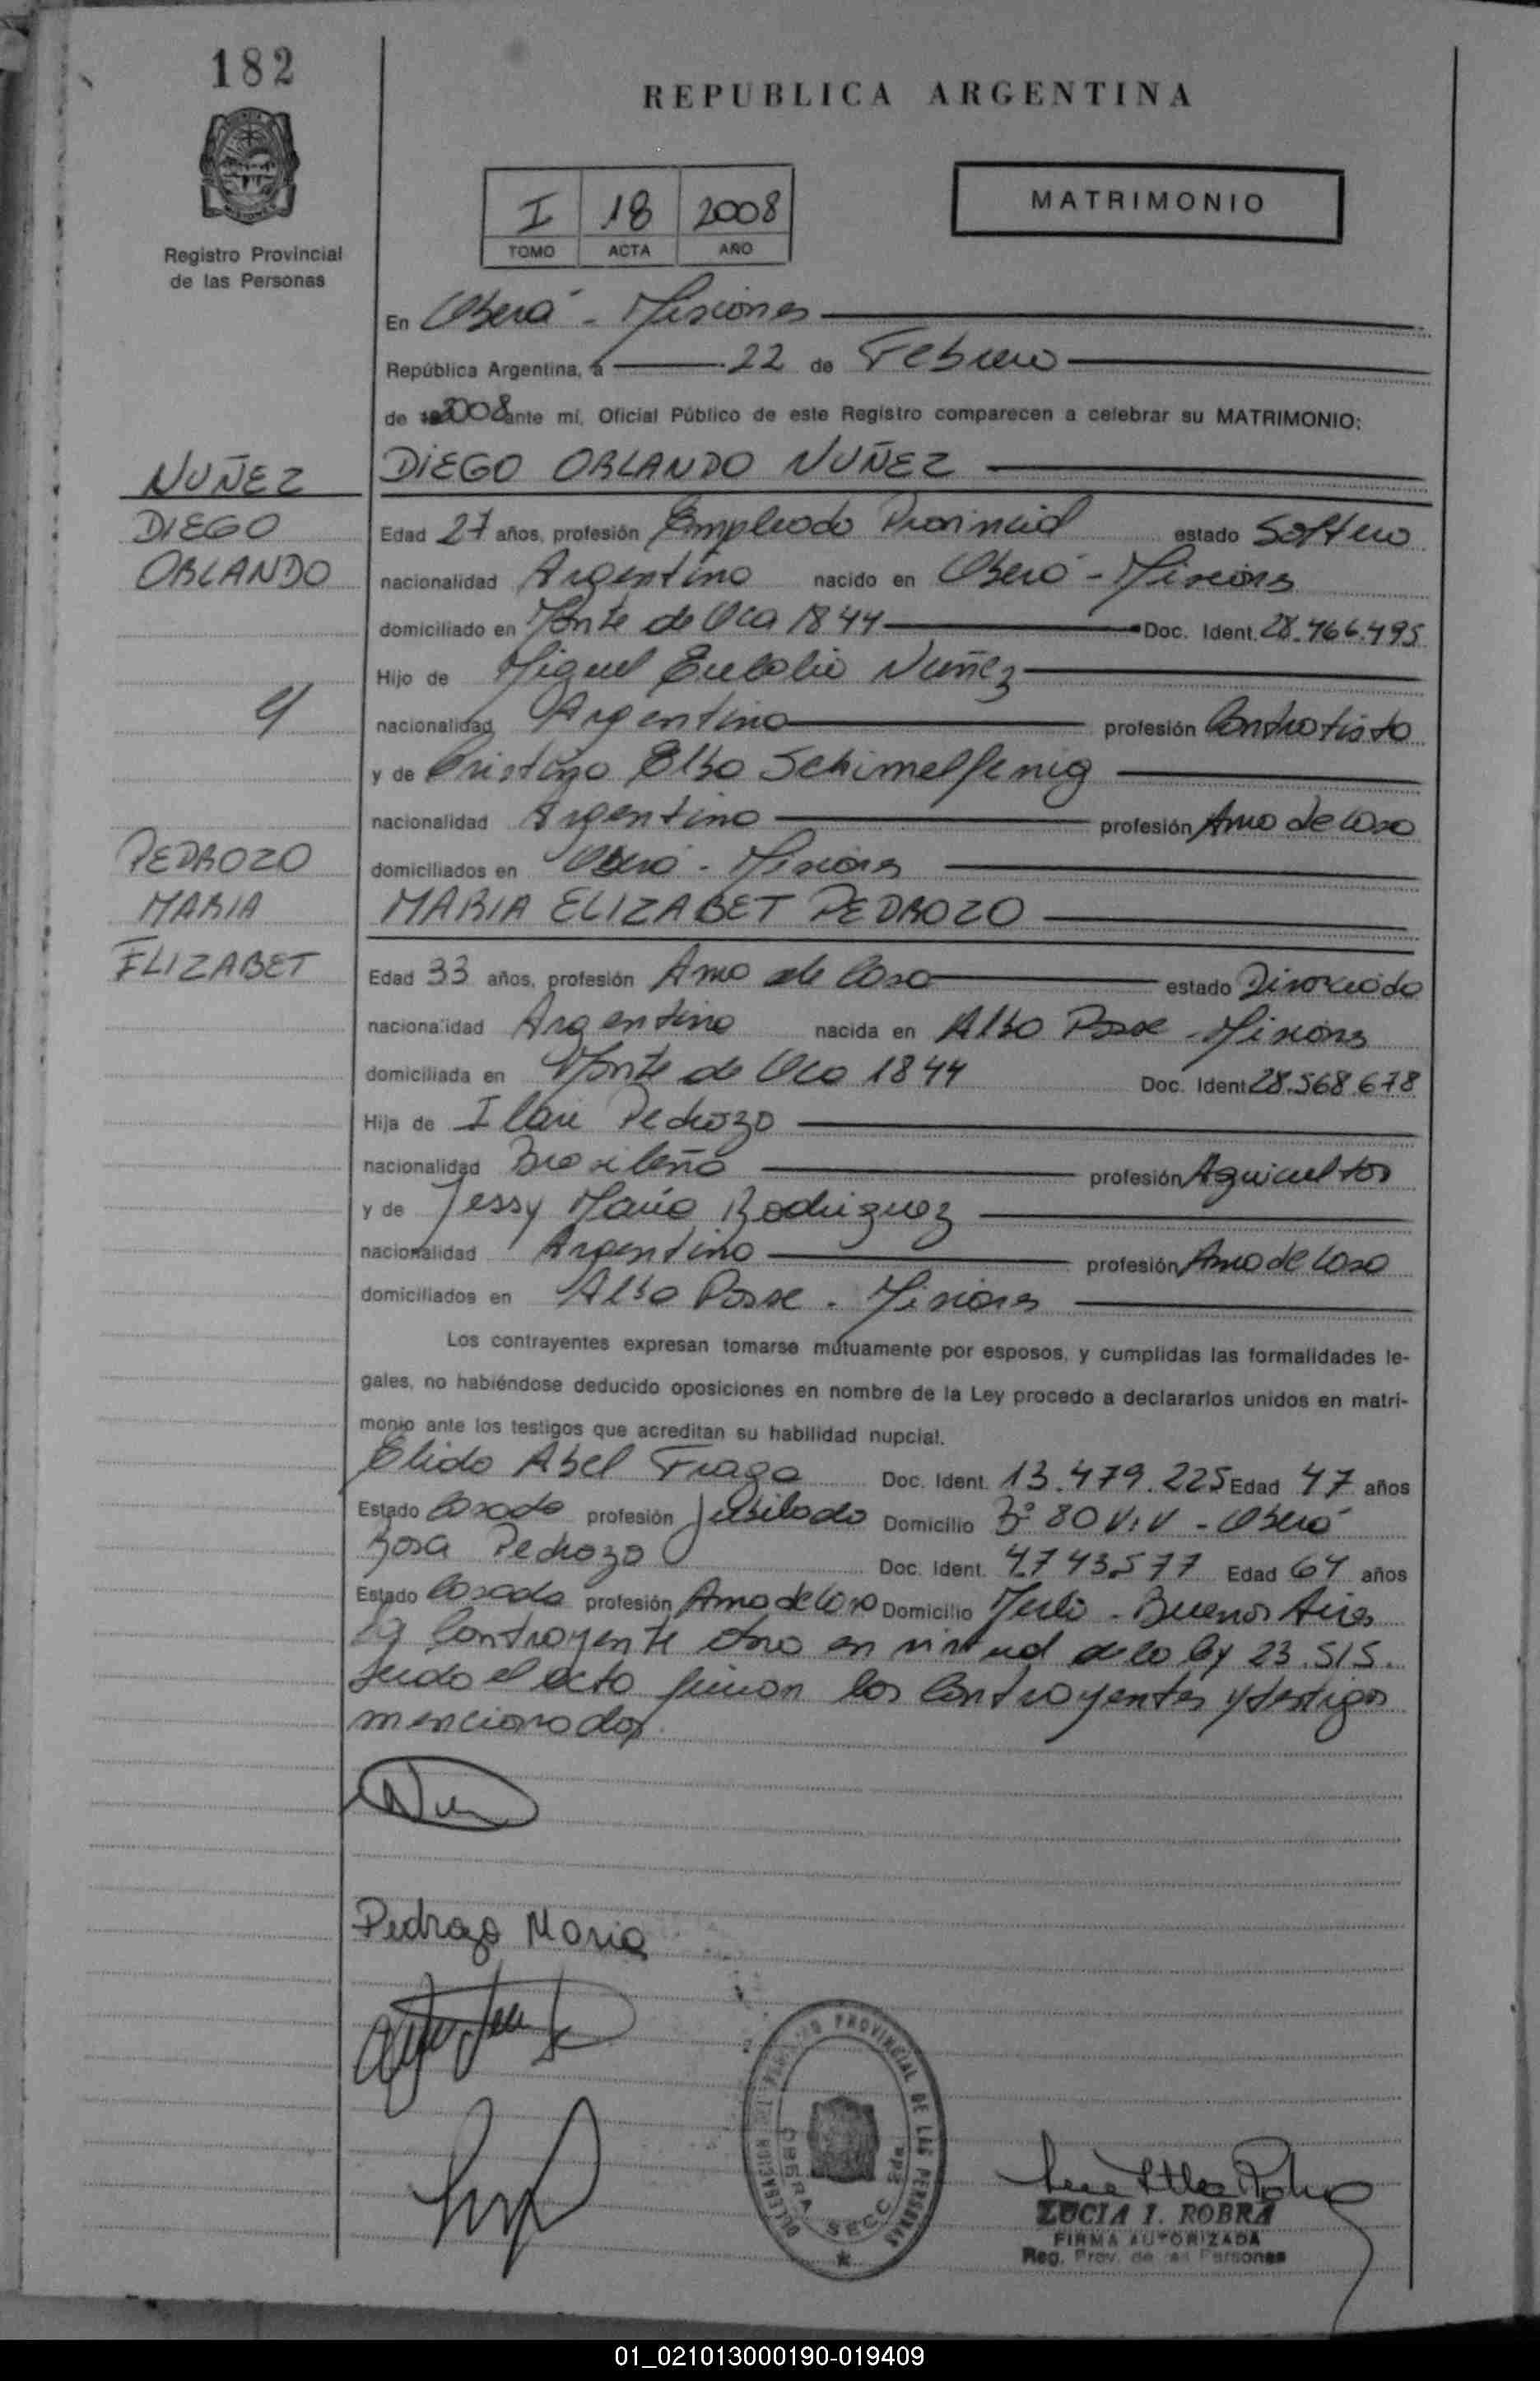 182
REPUBLICA ARGENTINA
I 18 2008
TOMO ACTA AÑO
MATRIMONIO
Registro Provincial
de las Personas
En Oberá - Misiones
República Argentina, a 22 de Febrero
de 2008 ante mí, Oficial Público de este Registro comparecen a celebrar su MATRIMONIO:
NUÑEZ
DIEGO
ORLANDO
y
PEDROZO
MARIA
ELIZABET
DIEGO ORLANDO NUÑEZ
Edad 27 años, profesión Empleado Provincial estado Soltero
nacionalidad Argentina nacido en Oberá - Misiones
domiciliado en Monte de Oca 1844 Doc. Ident. 28.766.495
Hijo de Miguel Eulalio Nuñez
nacionalidad Argentina profesión Contratista
y de Cristina Elba Schimelfenig
nacionalidad Argentina profesión Ama de Casa
domiciliados en Oberá - Misiones
MARIA ELIZABET PEDROZO
Edad 33 años, profesión Ama de Casa estado Divorciada
nacionalidad Argentina nacida en Alba Posse - Misiones
domiciliada en Monte de Oca 1844 Doc. Ident. 28.568.678
Hija de Ilari Pedrozo
nacionalidad Brasileña profesión Agricultor
y de Jessy Maria Rodriguez
nacionalidad Argentina profesión Ama de Casa
domiciliados en Alba Posse - Misiones
Los contrayentes expresan tomarse mútuamente por esposos, y cumplidas las formalidades le-
gales, no habiéndose deducido oposiciones en nombre de la Ley procedo a declararlos unidos en matri-
monio ante los testigos que acreditan su habilidad nupcial.
Elido Abel Fraga Doc. Ident. 13.479.225 Edad 47 años
Estado Casado profesión Jubilado Domicilio Bº 80 Viv - Oberá
Rosa Pedrozo Doc. Ident. 4.743.577 Edad 64 años
Estado Casada profesión Ama de Casa Domicilio Merlo - Buenos Aires
La Contrayente en virtud de la ley 23.515.
Leido el acto firman los Contrayentes y testigos
mencionados.
Pedrozo Maria
REGISTRO PROVINCIAL DE LAS PERSONAS
DELEGACION
OBERA SECC
LUCIA I. ROBRA
FIRMA AUTORIZADA
Reg. Prov. de las Personas
01_021013000190-019409